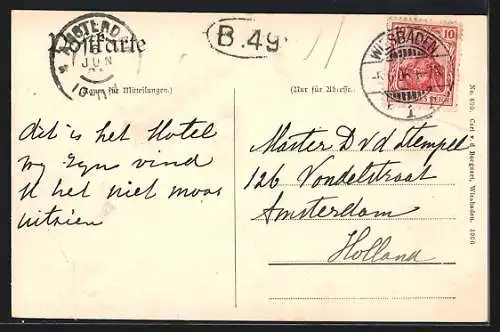 Postkarte
AMSTERD
JUN
B. 49
WIESBADEN
1
10
(Raum für Mitteilungen.)
(Nur für Adresse.)
dit is het Hotel
wy zyn vind
U het niet mooi
uitzien
Master D v d Stempel
126 Vondelstraat
Amsterdam
Holland
Carl v. d. Boogaart, Wiesbaden. 1906